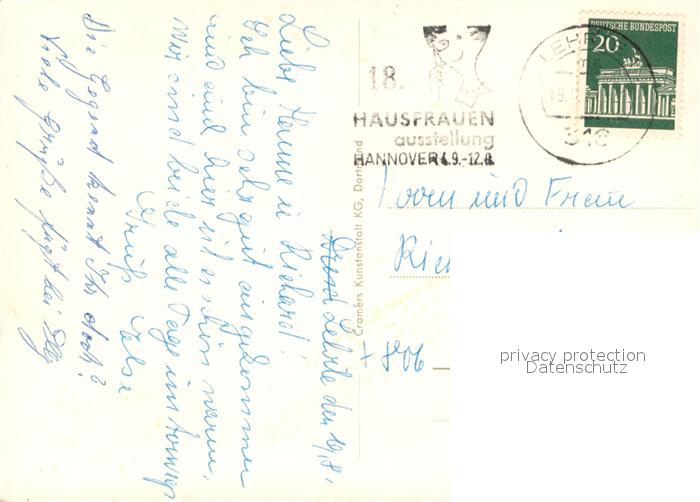 Lehrte den 19.8.
Liebe Hanne u Richard!
Ich bin sehr gut angekommen
und auch hier ist es schön warm.
Wir sind beide alle Tage unterwegs
Gruß Else
Die Gegend kennt Ihr doch?
Viele Grüße fügt bei Elly
18.
HAUSFRAUEN
ausstellung
HANNOVER 4.9.-12.9.
LEHRTE
19.
316
DEUTSCHE BUNDESPOST
20
Cramers Kunstanstalt KG, Dortmund
Herrn und Frau
Rich
806
privacy protection
Datenschutz